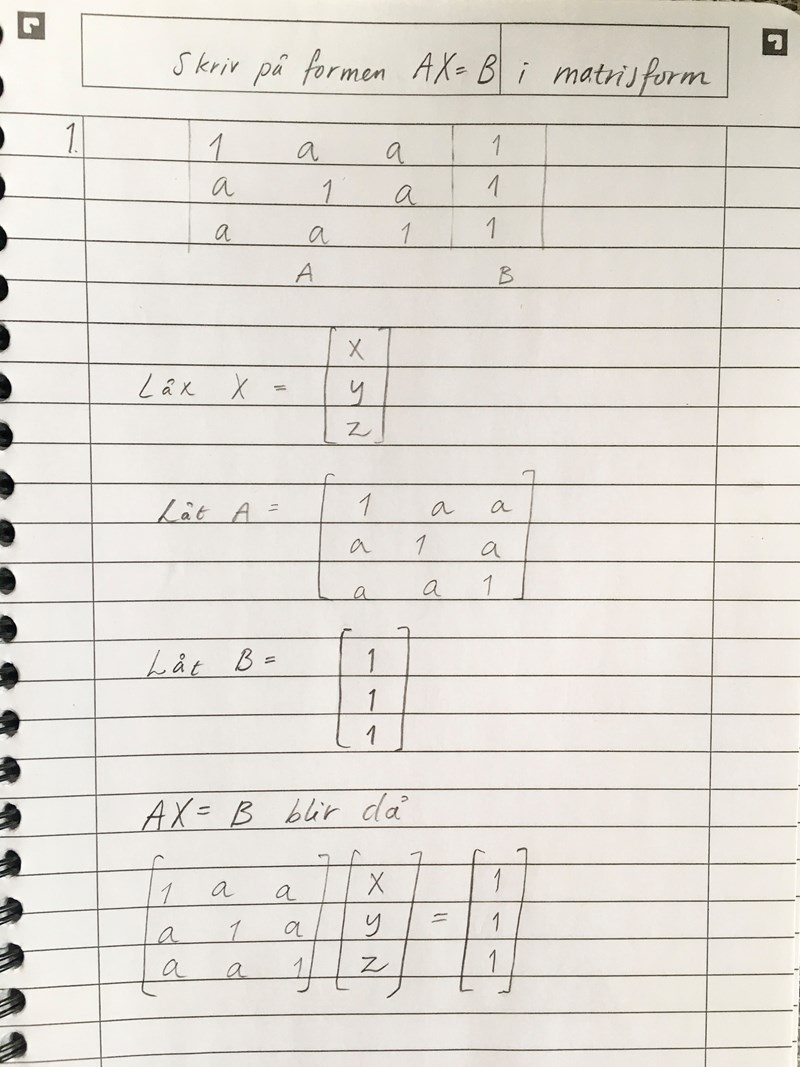 Skriv på formen AX=B i matrisform
1.
1 a a 1
a 1 a 1
a a 1 1
A B
x
Låx X = y
z
1 a a
Låt A = a 1 a
a a 1
1
Låt B = 1
1
AX = B blir då
1 a a x 1
a 1 a y = 1
a a 1 z 1